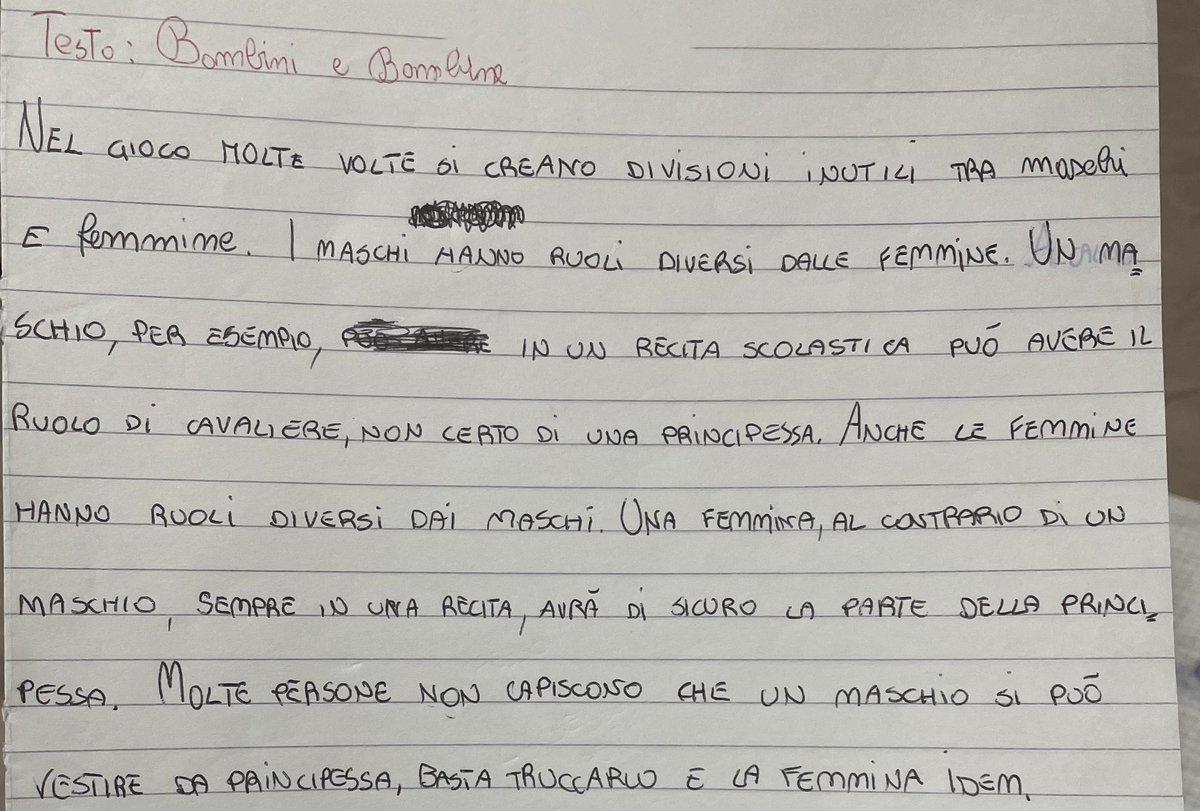 Testo: Bambini e Bambine
NEL GIOCO MOLTE VOLTE SI CREANO DIVISIONI INUTILI TRA maschi
E femmine. I MASCHI HANNO RUOLI DIVERSI DALLE FEMMINE. UN MA=
SCHIO, PER ESEMPIO, IN UN RECITA SCOLASTICA PUÒ AVERE IL
RUOLO DI CAVALIERE, NON CERTO DI UNA PRINCIPESSA. ANCHE LE FEMMINE
HANNO RUOLI DIVERSI DAI MASCHI. UNA FEMMINA, AL CONTRARIO DI UN
MASCHIO, SEMPRE IN UNA RECITA, AVRÀ DI SICURO LA PARTE DELLA PRINCI=
PESSA. MOLTE PERSONE NON CAPISCONO CHE UN MASCHIO SI PUÒ
VESTIRE DA PRINCIPESSA, BASTA TRUCCARLO E LA FEMMINA IDEM.